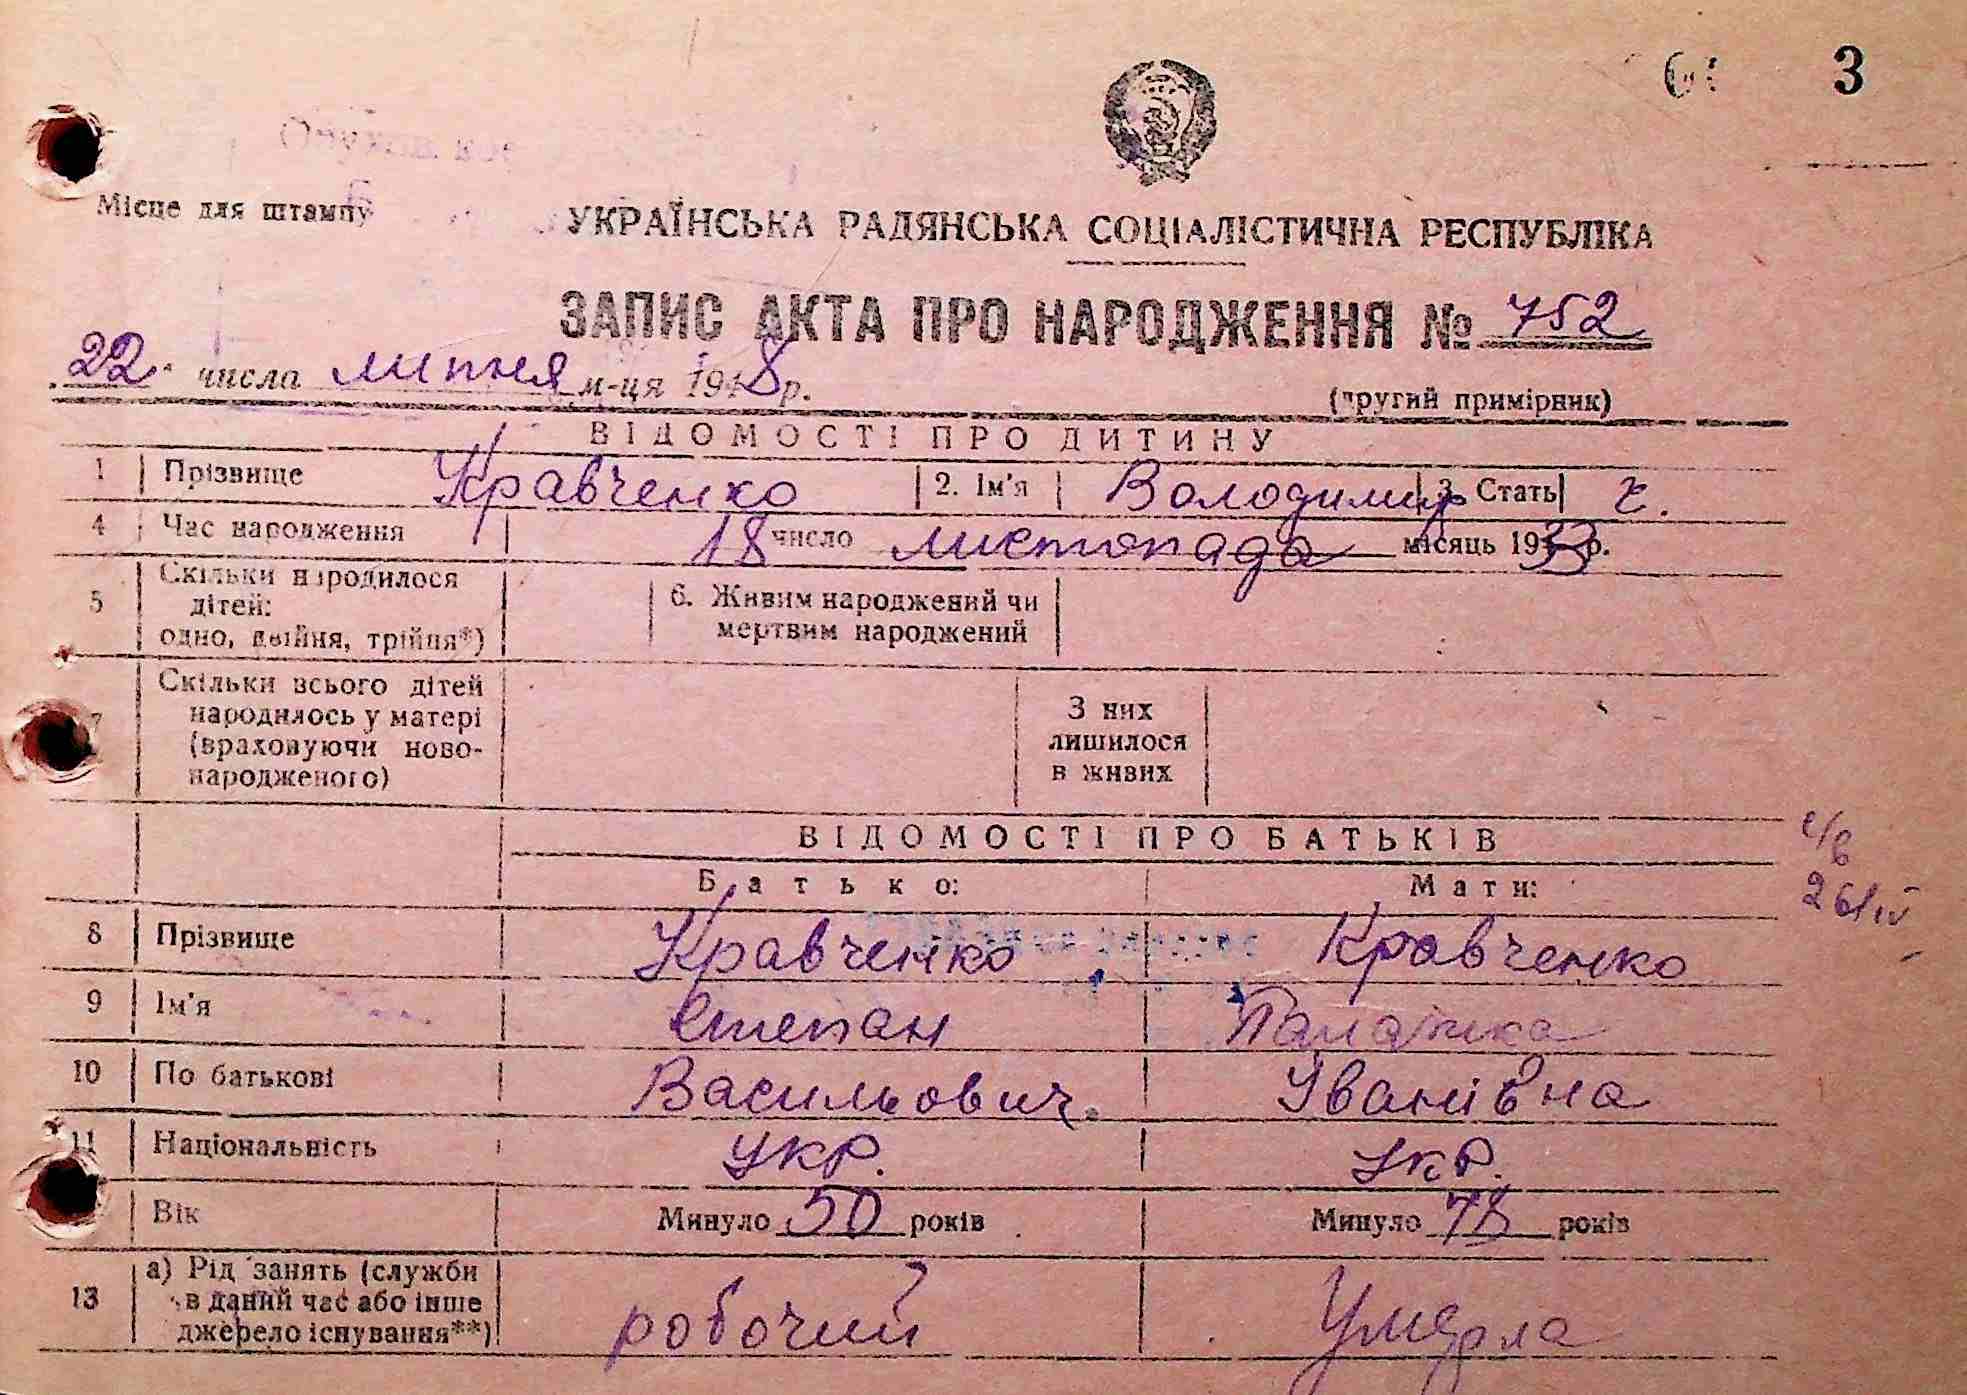 3
Місце для штампу
УКРАЇНСЬКА РАДЯНСЬКА СОЦІАЛІСТИЧНА РЕСПУБЛІКА
ЗАПИС АКТА ПРО НАРОДЖЕННЯ № 752
22 числа липня м-ця 1948 р.
(другий примірник)
ВІДОМОСТІ ПРО ДИТИНУ
1 Прізвище Кравченко 2. Ім'я Володимир 3. Стать ч.
4 Час народження 18 число листопада місяць 1933 р.
5 Скільки народилося дітей: одно, двійня, трійня*) 6. Живим народжений чи мертвим народжений
7 Скільки всього дітей народилось у матері (враховуючи новонародженого) З них лишилося в живих
ВІДОМОСТІ ПРО БАТЬКІВ
Батько: Мати:
8 Прізвище Кравченко Кравченко
9 Ім'я Степан Палажка
10 По батькові Васильович Іванівна
11 Національність укр. укр.
Вік Минуло 50 років Минуло 48 років
13 а) Рід занять (служби в даний час або інше джерело існування**) робочий Умерла